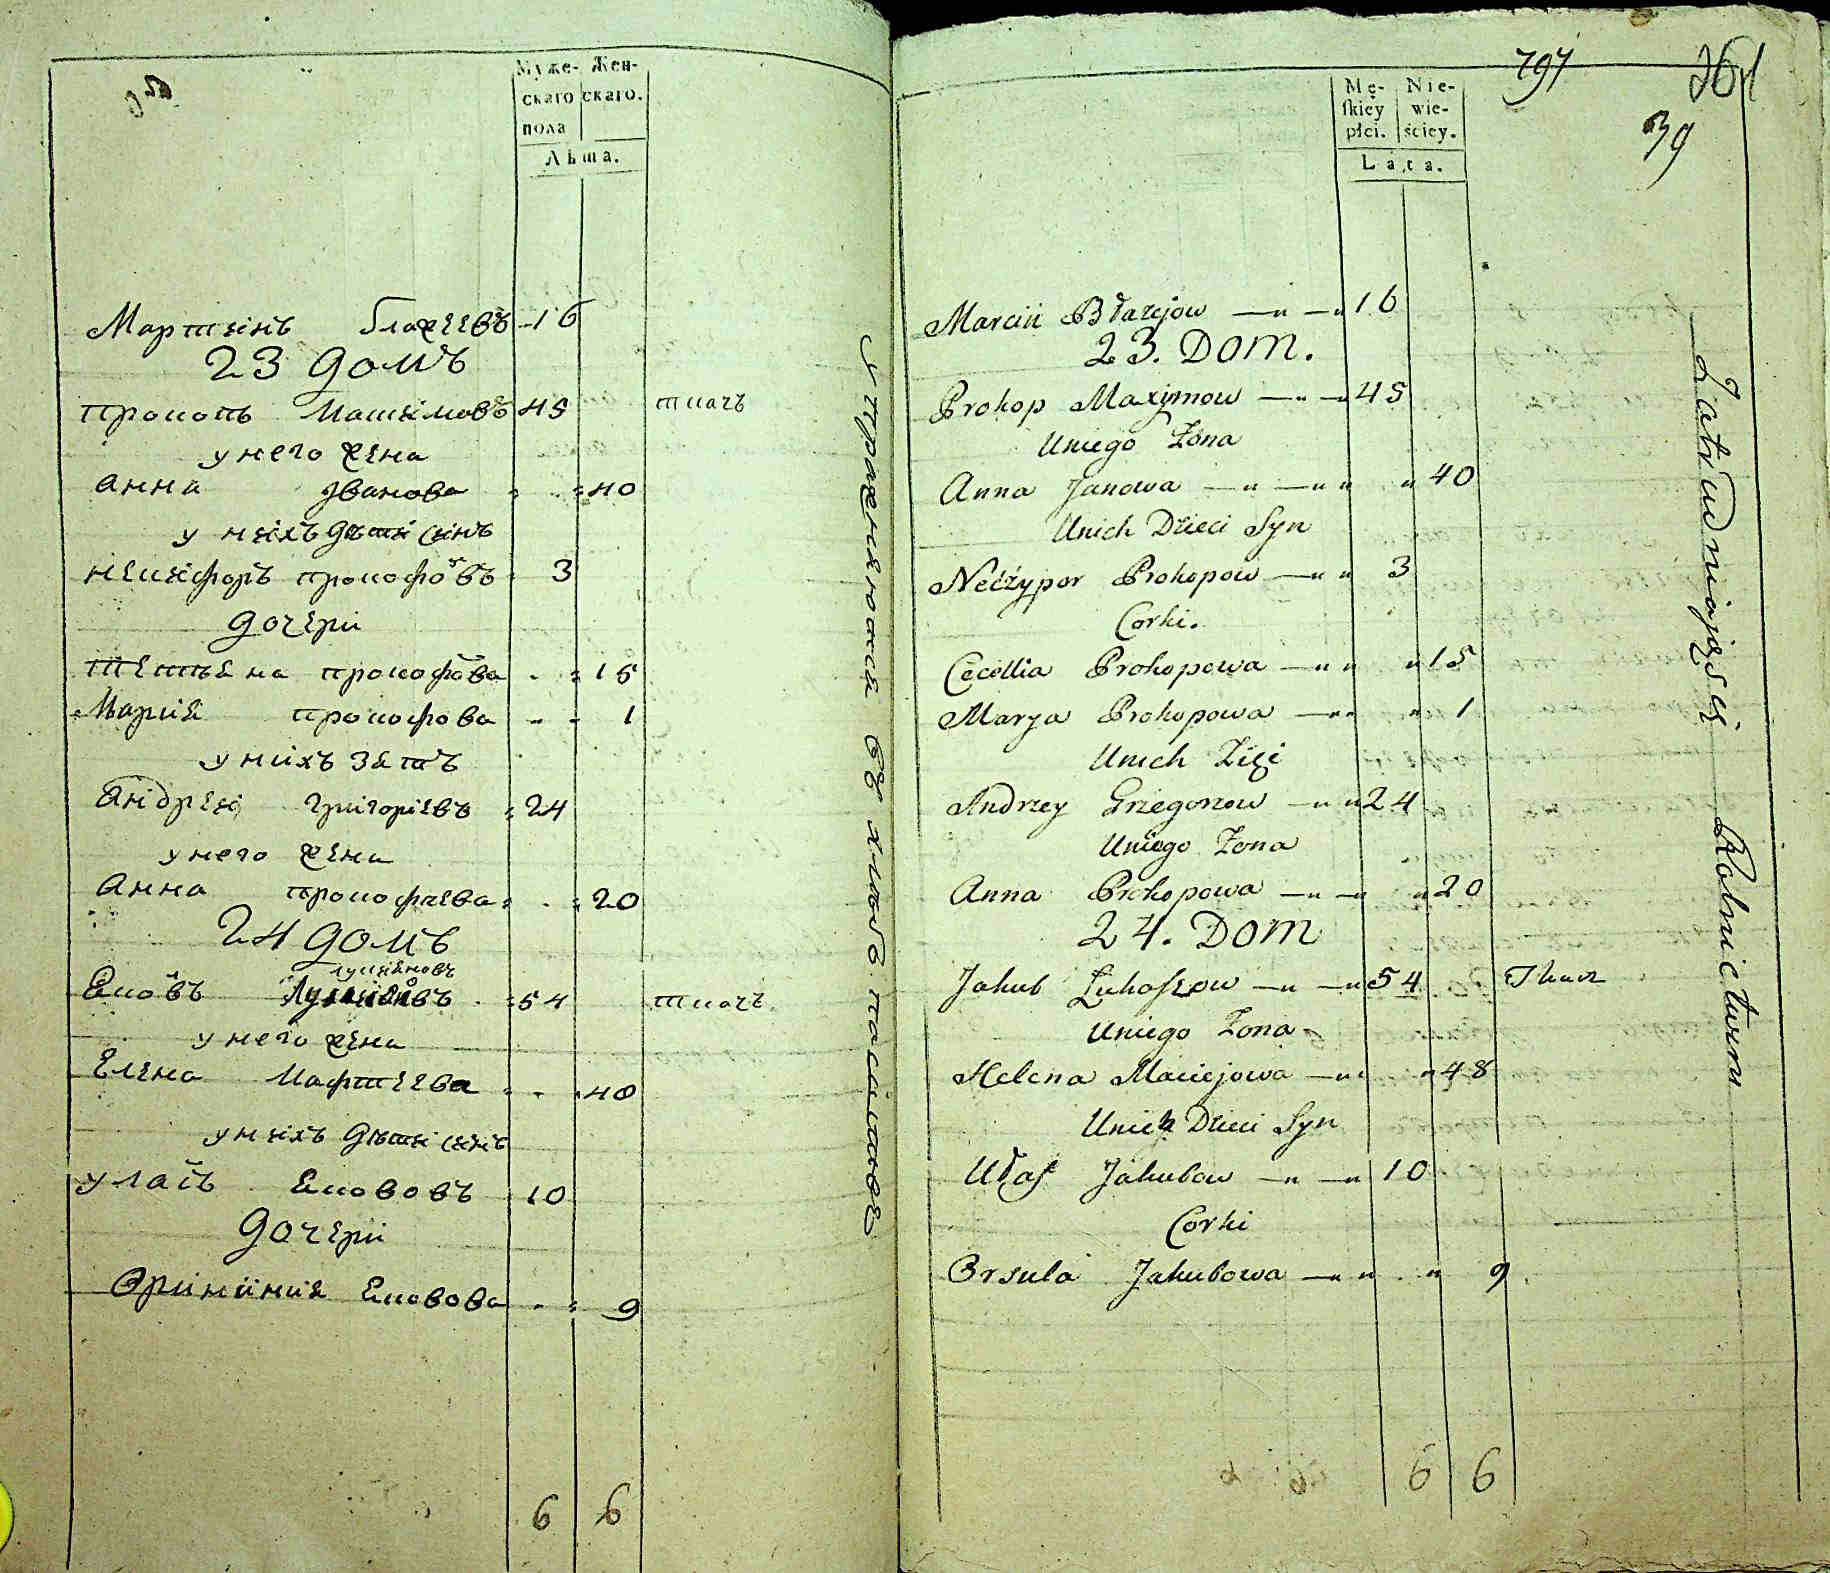 Муже- Жен-
скаго скаго.
пола
Лѣта.
Мартинъ Блажеевъ 16
23 домъ
Прокопъ Максимовъ 45 ткачъ
у него жена
Анна Иванова 40
у нихъ дѣти синъ
Никифоръ Прокофовъ 3
дочери
Тетьяна Прокофова 15
Марія Прокофова 1
у нихъ зять
Андрей Григоріевъ 24
у него жена
Анна Прокофиева 20
24 домъ
Лукяновъ
Яковъ 54 ткачъ
у него жена
Елена Мафтеева 48
у нихъ дѣти синъ
Уласъ Якововъ 10
дочери
Яковова 9
6 6
Упражняются въ хлебопашествѣ
797
39
Mę- Nie-
skiey wie-
płci. ściey.
Lata.
Marcin Błażejow 16
23. Dom.
Prokop Maxymow 45
Uniego Żona
Anna Janowa 40
Unich Dzieci Syn
Neczypor Prokopow 3
Corki.
Cecellia Prokopowa 15
Marya Prokopowa 1
Unich Zięć
Andrzey Grzegorzow 24
Uniego Żona
Anna Prokopowa 20
24. Dom
Jakub Łukaszow 54 Tkacz
Uniego Żona
Helena Maciejowa 48
Unich Dzieci Syn
Ułas Jakubow 10
Corki
Orsula Jakubowa 9
6 6
Zatrudniający się Rolnictwem